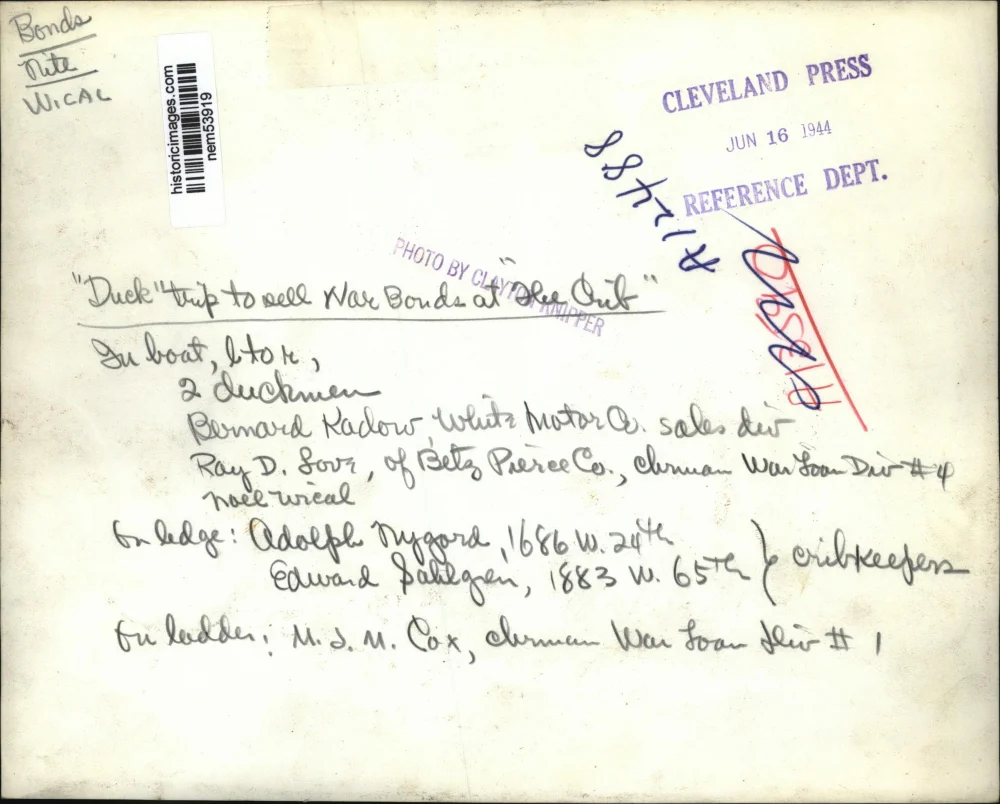 Bonds
Nite
Wical
historicimages.com
nem53919
CLEVELAND PRESS
JUN 16 1944
REFERENCE DEPT.
A12488
PHOTO BY CLAYTON KNIPPER
"Duck" trip to sell War Bonds at "The Crib"
In boat, l to r,
2 duckmen
Bernard Kadow, White Motor Co. sales div
Ray D. Love, of Betz Pierce Co., chrman War Loan Div #4
Noel Wical
On ledge: Adolph Nygord, 1686 W. 24th
Edward Sahlgren, 1883 W. 65th } cribkeepers
On ladder: M. J. M. Cox, chrman War Loan Div # 1